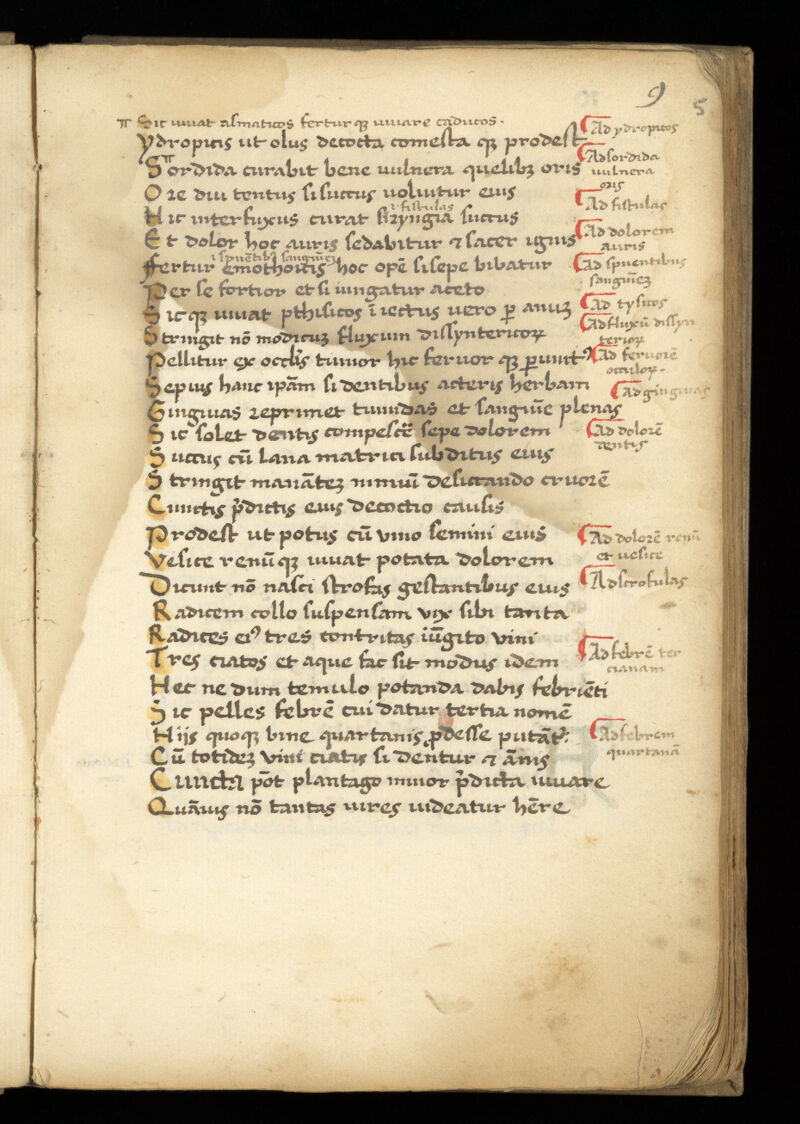 9
5
Sic iuuat asmaticos fertur qꝫ iuuare caducos ·
Ydropicis ut olus decocta comesta qꝫ prodest
Sordida curabit bene uulnera quelibꝫ oris
Ore diu tentus si succus uoluitur eius
Hic interfuxus curat siryngia succus
i· fistulas
Et dolor hoc auris sedabitur ⁊ sacer ignis
i spuentibꝫ sanguinē
ffertur emothoicis hoc opē si sepe bibatur
Per se fortior et si iungatur aceto
Sic qꝫ iuuat pthisicos īiectus uero ꝑ anuꝫ
Stringit nō modicuꝫ fluxum dissyntericoꝝ
Pellitur ex occlis tumor hic feruor qꝫ ꝑunctꝰ
Sepius hanc ipām si dentibus acteris herbam
Gingiuas reprimet tumidas et sanguīe plenas
Sic solet dentis compescē sepe dolorem
Succus cū lana matrici subditus eius
Stringit manāteꝫ nimiuī desiccando cruorē
Cunctis p̄dictis eius decoctio causis
Prodest ut potus cū vino semini eius
Vesice renū qꝫ iuuat potata dolorem
Dicunt nō nasci strofas gestantibus eius
Radicem collo suspensam vix sibi tanta
Radices eiꝰ tres contritas iūgito vini
Tres ciatos et aque fac sit modus idem
Hec ne dum temulo potanda dabis febriēti
Sic pelles febrē cui datur tertia nomē
Hijs quoqꝫ bine quartanis ꝓdesse putāt᷑
Cū totideꝫ vini ciatis si dentur ⁊ ānis
Cuncta pōt plantago minor p̄dicta iuuare
Quāuis nō tantas uires uideatur hēre
Ad ydropicos
Ad sordida
uulnera
oris
Ad fistulas
Ad dolorem
auris
Ad spuentibus
sanguineꝫ
Ad tysicos
Ad fluxū dissyn
terioꝝ
Ad feruorē
occuloꝝ ·
Ad gingiuas
Ad dolorē
dentis
Ad dolorē renū
et uesice
Ad scrofulas
Ad febrē ter
cianam
Ad febrem
quartanā